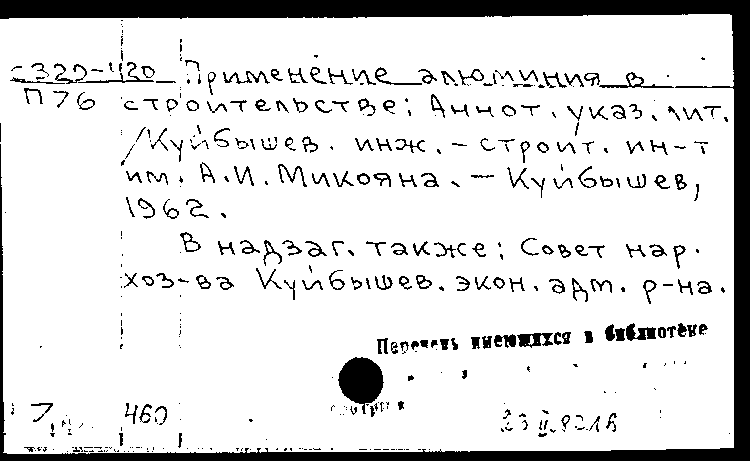 с320-420 Применение алюминия в
П76 строительстве: Аннот. указ. лит.
/Куйбышев. инж.-строит. ин-т
им. А.И. Микояна. - Куйбышев,
1962.
В надзаг. также: Совет нар.
хоз-ва Куйбышев. экон. адм. р-на.
Перечень имеющихся в библиотеке
460